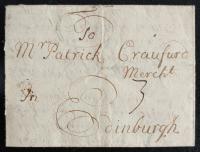 To
Mr Patrick Craufurd
Mercht
In
3
Edinburgh